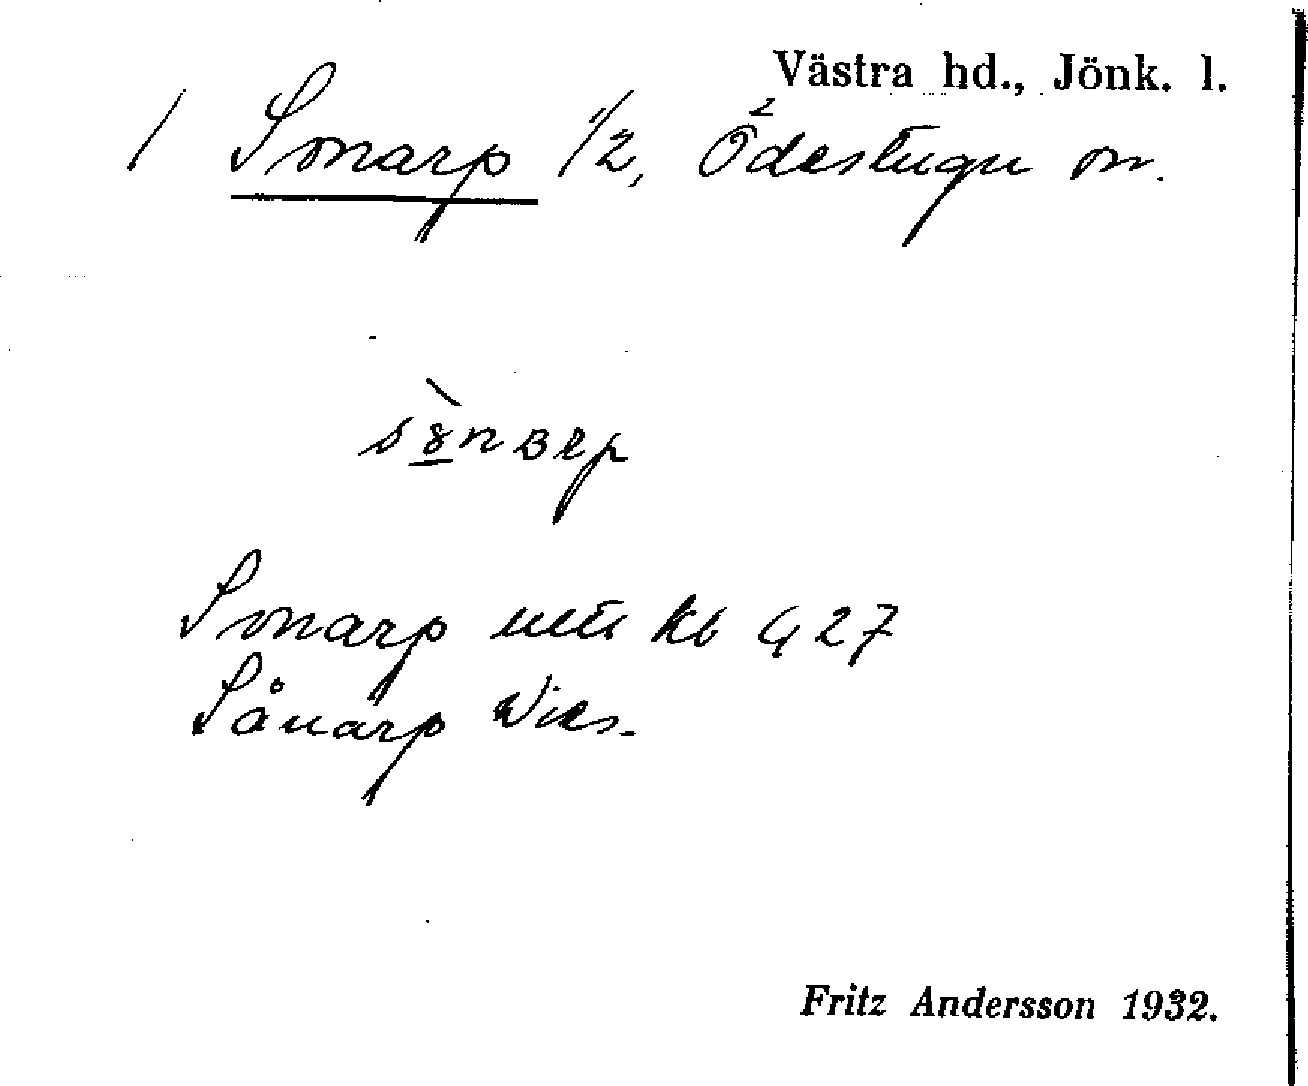 Västra hd., Jönk. l.
/ Sonarp 1/2, Ödestugu sn.
Sonarp utt kb G 27
Sånarp Wies.
Fritz Andersson 1932.